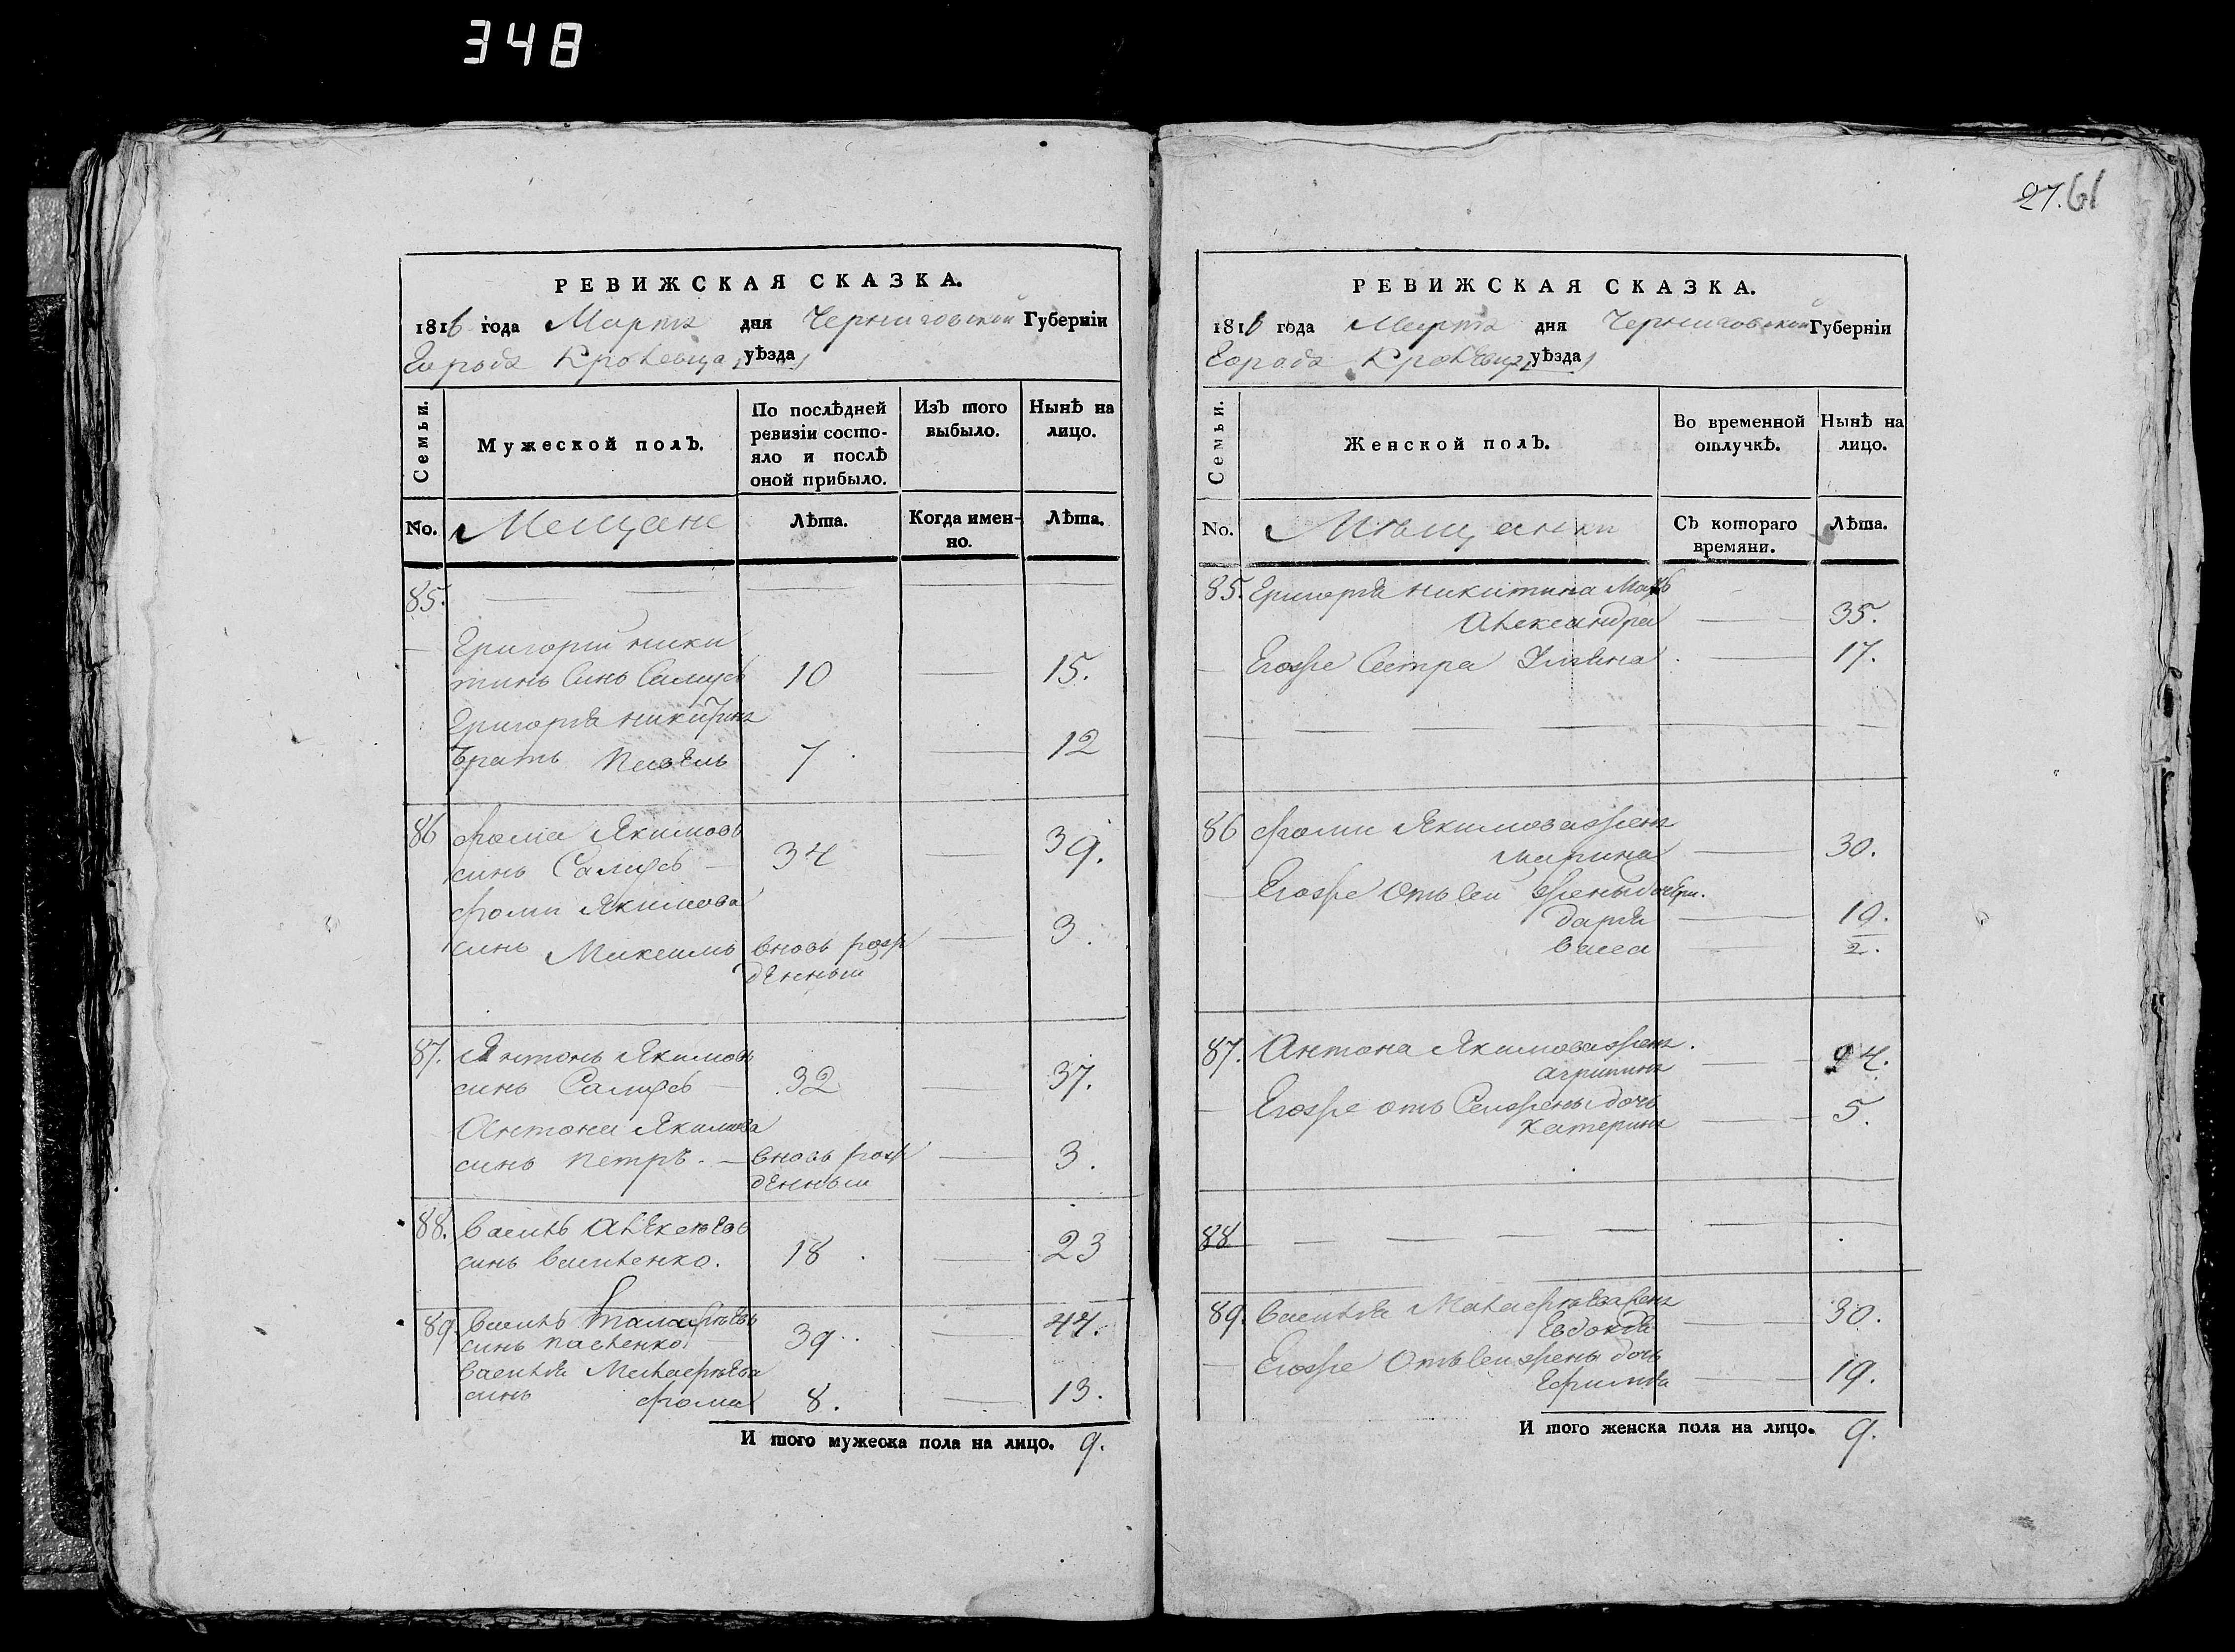 348
27.61
РЕВИЖСКАЯ СКАЗКА.
1816 года Марта дня Черниговской Губерніи
Города Кролевца уѣзда
Семьи.
Мужеской полъ.
По послѣдней ревизіи состо-
яло и послѣ
оной прибыло.
Изъ того
выбыло.
Нынѣ на
лицо.
No.
Мещане
Лѣта.
Когда имен-
но.
Лѣта.
85.
Григорій Ники
тинъ Синъ Самусь 10 15.
Григорія Никитина
братъ Павелъ 7 12
86 Фома Якимовъ
синъ Самусь 34 39.
Фоми Якимова
синъ Максимъ вновь рож 3.
денный
87. Антонъ Якимовъ
синъ Самусь 32 37.
Антона Якимова
синъ Петръ. вновь рож 3.
денный
88. Василь Алексѣевъ
синъ Василенко. 18 23
89. Василь
синъ Павленко. 39 44.
Василія
синъ Фома 8. 13.
И того мужеска пола на лицо. 9.
РЕВИЖСКАЯ СКАЗКА.
1816 года Марта дня Черниговской Губерніи
Города Кролевца уѣзда
Семьи.
Женской полъ.
Во временной
отлучкѣ.
Нынѣ на
лицо.
No.
Мѣщанки
Съ котораго
времяни.
Лѣта.
85. Григорія Никитина Мать
Александра 35.
Егожъ Сестра Улияна 17.
86 Фоми Якимова жена
Марина 30.
Егожъ Отъ сей жены дочери.
Дарія 10.
Васса 2.
87. Антона Якимова жена.
Агрипина 24.
Егожъ отъ Сей жены дочь
Катерина 5.
88
89. Василія жена
Евдокія 30.
Егожъ Отъ сей жены дочь
Ефимія 19.
И того женска пола на лицо. 9.